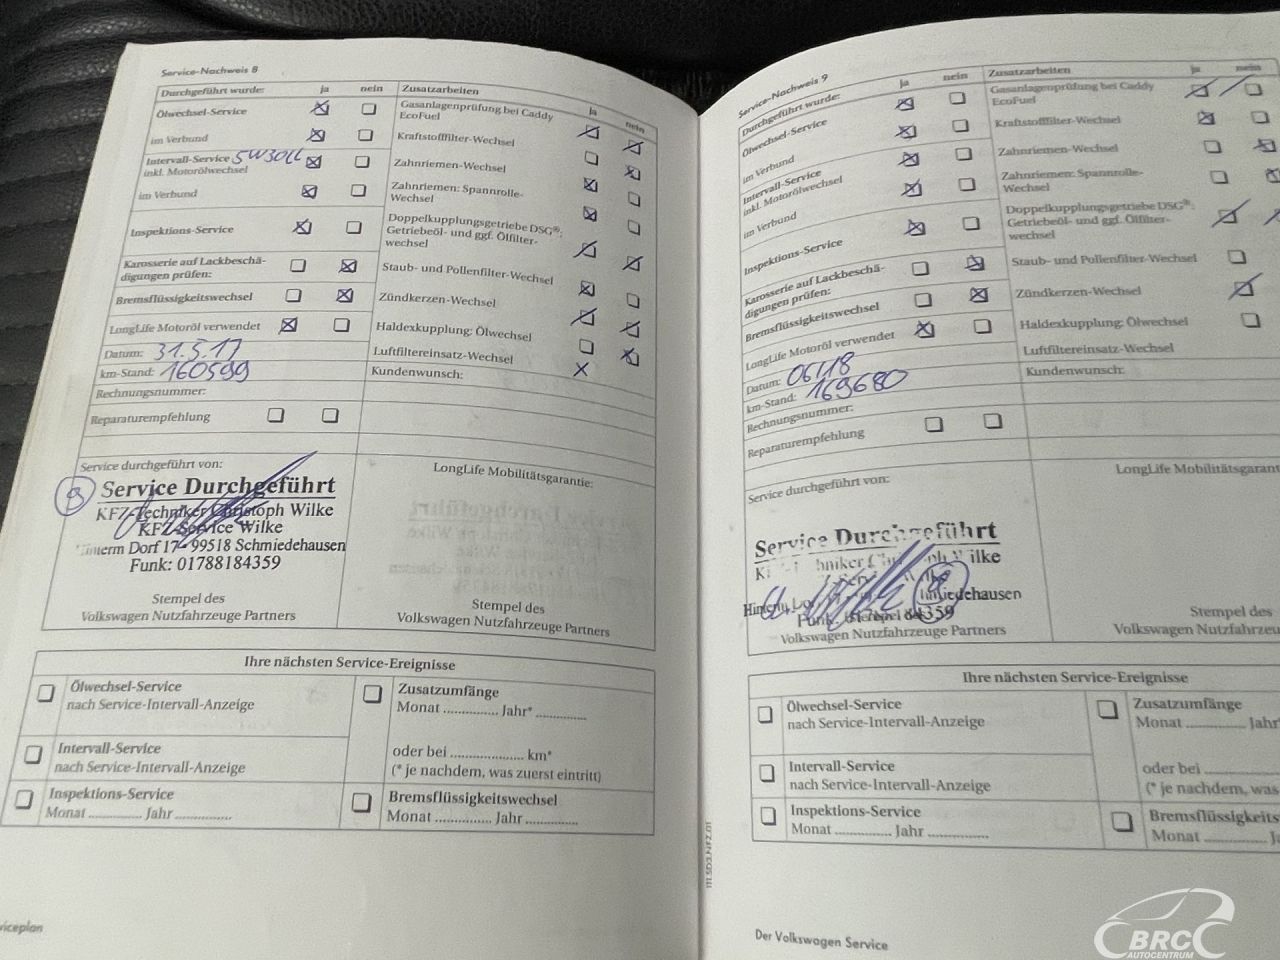 Service-Nachweis 8
Durchgeführt wurde: ja nein Zusatzarbeiten
ja nein
Ölwechsel-Service
Gasanlagenprüfung bei Caddy
EcoFuel
im Verbund
Kraftstofffilter-Wechsel
Intervall-Service 5W30LL
inkl. Motorölwechsel
Zahnriemen-Wechsel
im Verbund
Zahnriemen: Spannrolle-
Wechsel
Inspektions-Service
Doppelkupplungsgetriebe DSG®:
Getriebeöl- und ggf. Ölfilter-
wechsel
Karosserie auf Lackbeschä-
digungen prüfen:
Staub- und Pollenfilter-Wechsel
Bremsflüssigkeitswechsel
Zündkerzen-Wechsel
LongLife Motoröl verwendet
Haldexkupplung: Ölwechsel
Datum: 31.5.17
Luftfiltereinsatz-Wechsel
km-Stand: 160599
Kundenwunsch:
Rechnungsnummer:
Reparaturempfehlung
Service durchgeführt von:
LongLife Mobilitätsgarantie:
Service Durchgeführt
KFZ-Techniker Christoph Wilke
KFZ-Service Wilke
Hinterm Dorf 17 - 99518 Schmiedehausen
Funk: 01788184359
Stempel des
Volkswagen Nutzfahrzeuge Partners
Stempel des
Volkswagen Nutzfahrzeuge Partners
Ihre nächsten Service-Ereignisse
Ölwechsel-Service
nach Service-Intervall-Anzeige
Zusatzumfänge
Monat .............. Jahr* .............
Intervall-Service
nach Service-Intervall-Anzeige
oder bei .................... km*
(* je nachdem, was zuerst eintritt)
Inspektions-Service
Monat ............. Jahr ..............
Bremsflüssigkeitswechsel
Monat .............. Jahr .............
Service-Nachweis 9
Durchgeführt wurde: ja nein Zusatzarbeiten ja nein
Ölwechsel-Service
Gasanlagenprüfung bei Caddy
EcoFuel
im Verbund
Kraftstofffilter-Wechsel
Intervall-Service
inkl. Motorölwechsel
Zahnriemen-Wechsel
im Verbund
Zahnriemen: Spannrolle-
Wechsel
Inspektions-Service
Doppelkupplungsgetriebe DSG®:
Getriebeöl- und ggf. Ölfilter-
wechsel
Karosserie auf Lackbeschä-
digungen prüfen:
Staub- und Pollenfilter-Wechsel
Bremsflüssigkeitswechsel
Zündkerzen-Wechsel
LongLife Motoröl verwendet
Haldexkupplung: Ölwechsel
Datum: 06/18
Luftfiltereinsatz-Wechsel
km-Stand: 169680
Kundenwunsch:
Rechnungsnummer:
Reparaturempfehlung
Service durchgeführt von:
LongLife Mobilitätsgaranti
Service Durchgeführt
Stempel des
Volkswagen Nutzfahrzeuge Partners
Stempel des
Volkswagen Nutzfahrzeuge
Ihre nächsten Service-Ereignisse
Ölwechsel-Service
nach Service-Intervall-Anzeige
Zusatzumfänge
Monat .............. Jahr*
Intervall-Service
nach Service-Intervall-Anzeige
oder bei ..............
(* je nachdem, was
Inspektions-Service
Monat ............. Jahr ..............
Bremsflüssigkeits
Monat ..............
111.5D3.NFZ.01
iceplan
Der Volkswagen Service
BRC
AUTOCENTRUM